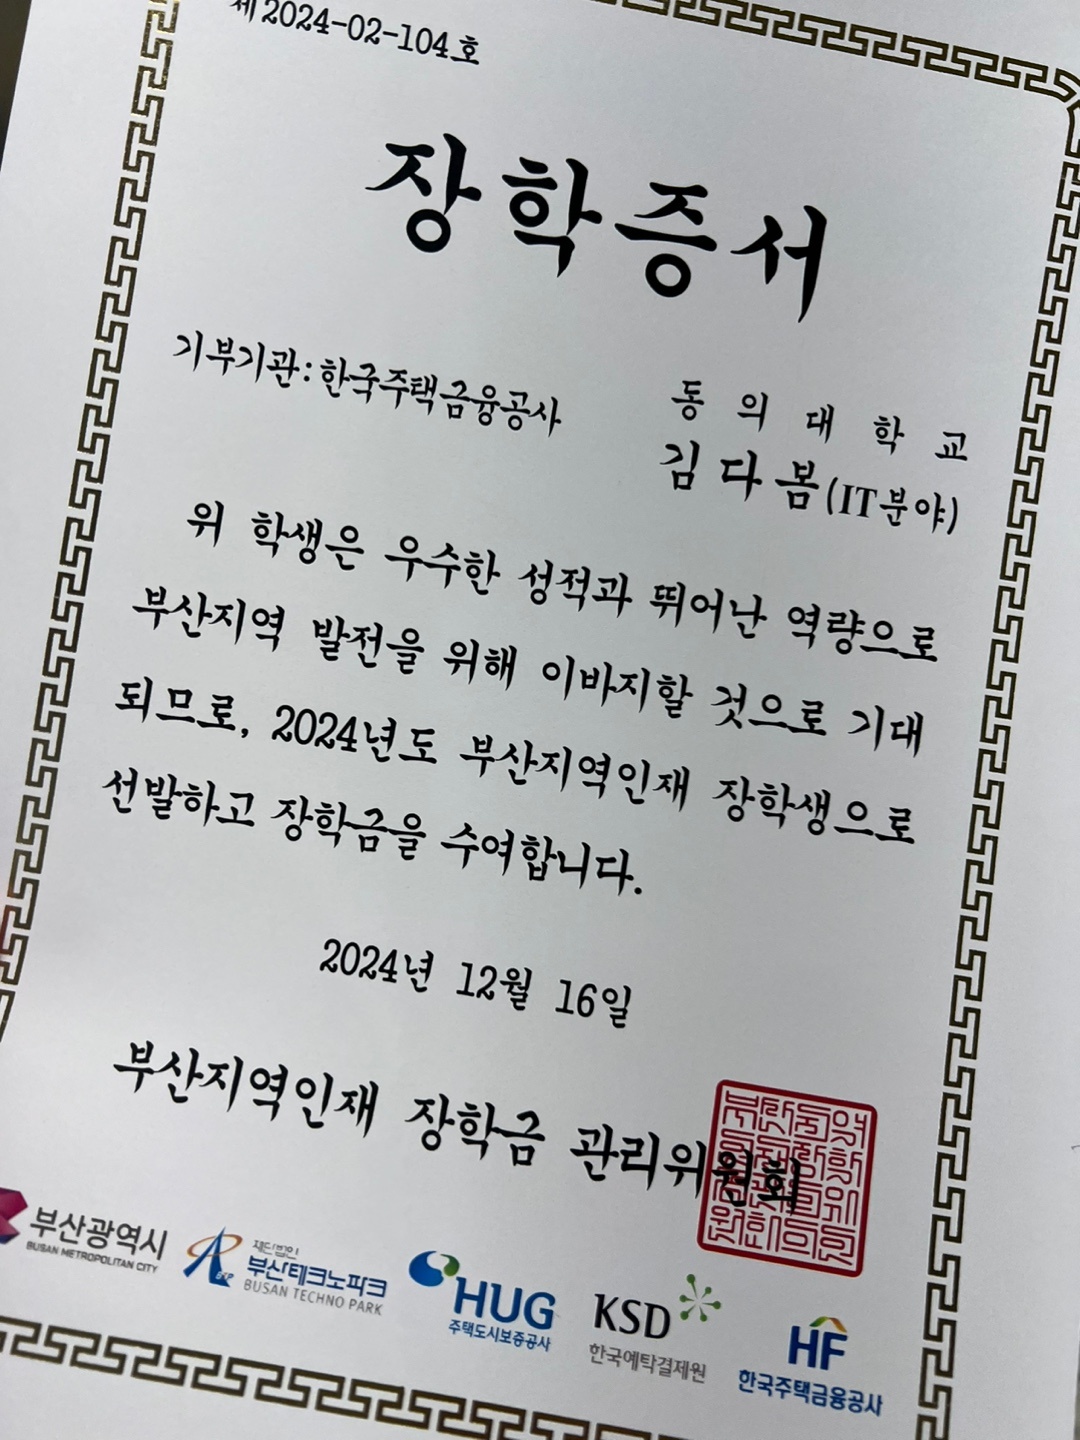 제2024-02-104호
장학증서
기부기관:한국주택금융공사
동의대학교
김다봄(IT분야)
위 학생은 우수한 성적과 뛰어난 역량으로
부산지역 발전을 위해 이바지할 것으로 기대
되므로, 2024년도 부산지역인재 장학생으로
선발하고 장학금을 수여합니다.
2024년 12월 16일
부산지역인재 장학금 관리위원회
부산광역시
BUSAN METROPOLITAN CITY
재단법인
부산테크노파크
BUSAN TECHNO PARK
BTP
HUG
주택도시보증공사
KSD
한국예탁결제원
HF
한국주택금융공사